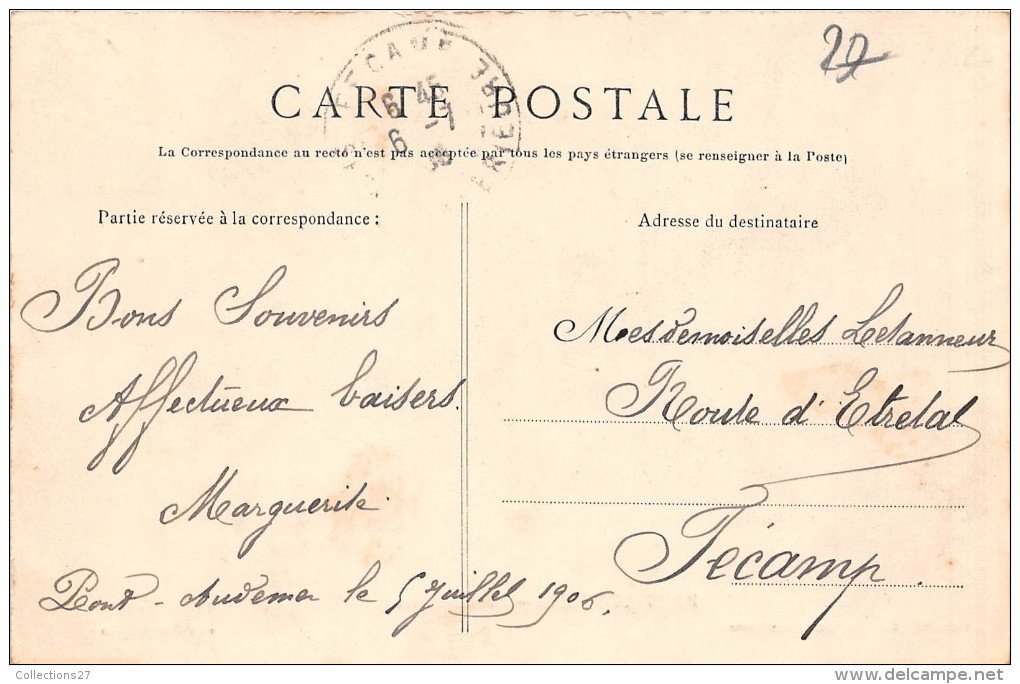 27
CARTE POSTALE
La Correspondance au recto n'est pas acceptée par tous les pays étrangers (se renseigner à la Poste)
FECAMP
6 45
6 -7
Partie réservée à la correspondance :
Adresse du destinataire
Bons Souvenirs
Affectueux baisers.
Marguerite
Pont-Audemer le 5 Juillet 1906.
Mesdemoiselles Letanneur
Route d'Etretat
Fécamp.
Collections27
delcampe.net